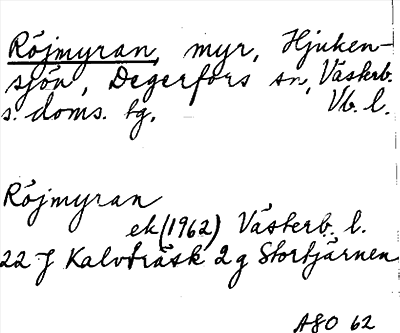 Röjmyran, myr, Hjuken-
sjön, Degerfors sn, Västerb.
s. doms. tg. Vb. l.
Röjmyran
ek (1962) Västerb. l.
22 J Kalvträsk 2 g Stortjärnen
ASO 62